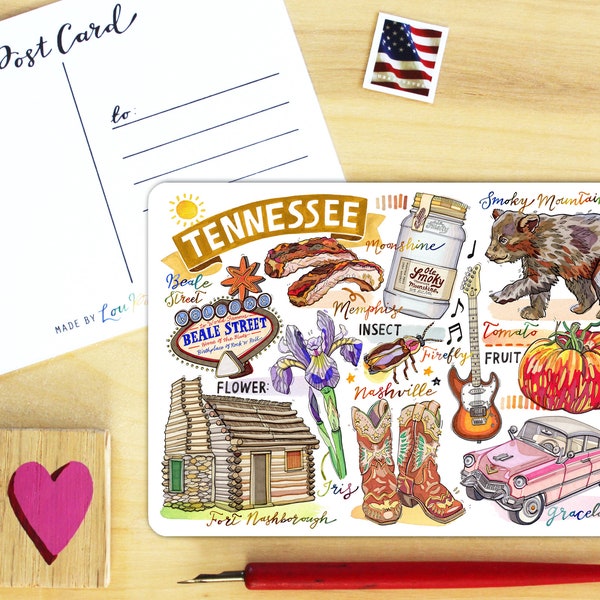 Post Card
to:
MADE BY Lou
TENNESSEE
Moonshine
Smoky Mountain
Beale
Street
Ole
Smoky
Moonshine
BEALE STREET
Birthplace of Rock 'n' Roll
Memphis
INSECT
Firefly
Tomato
FRUIT
FLOWER:
Nashville
Iris
Fort Nashborough
Gracela